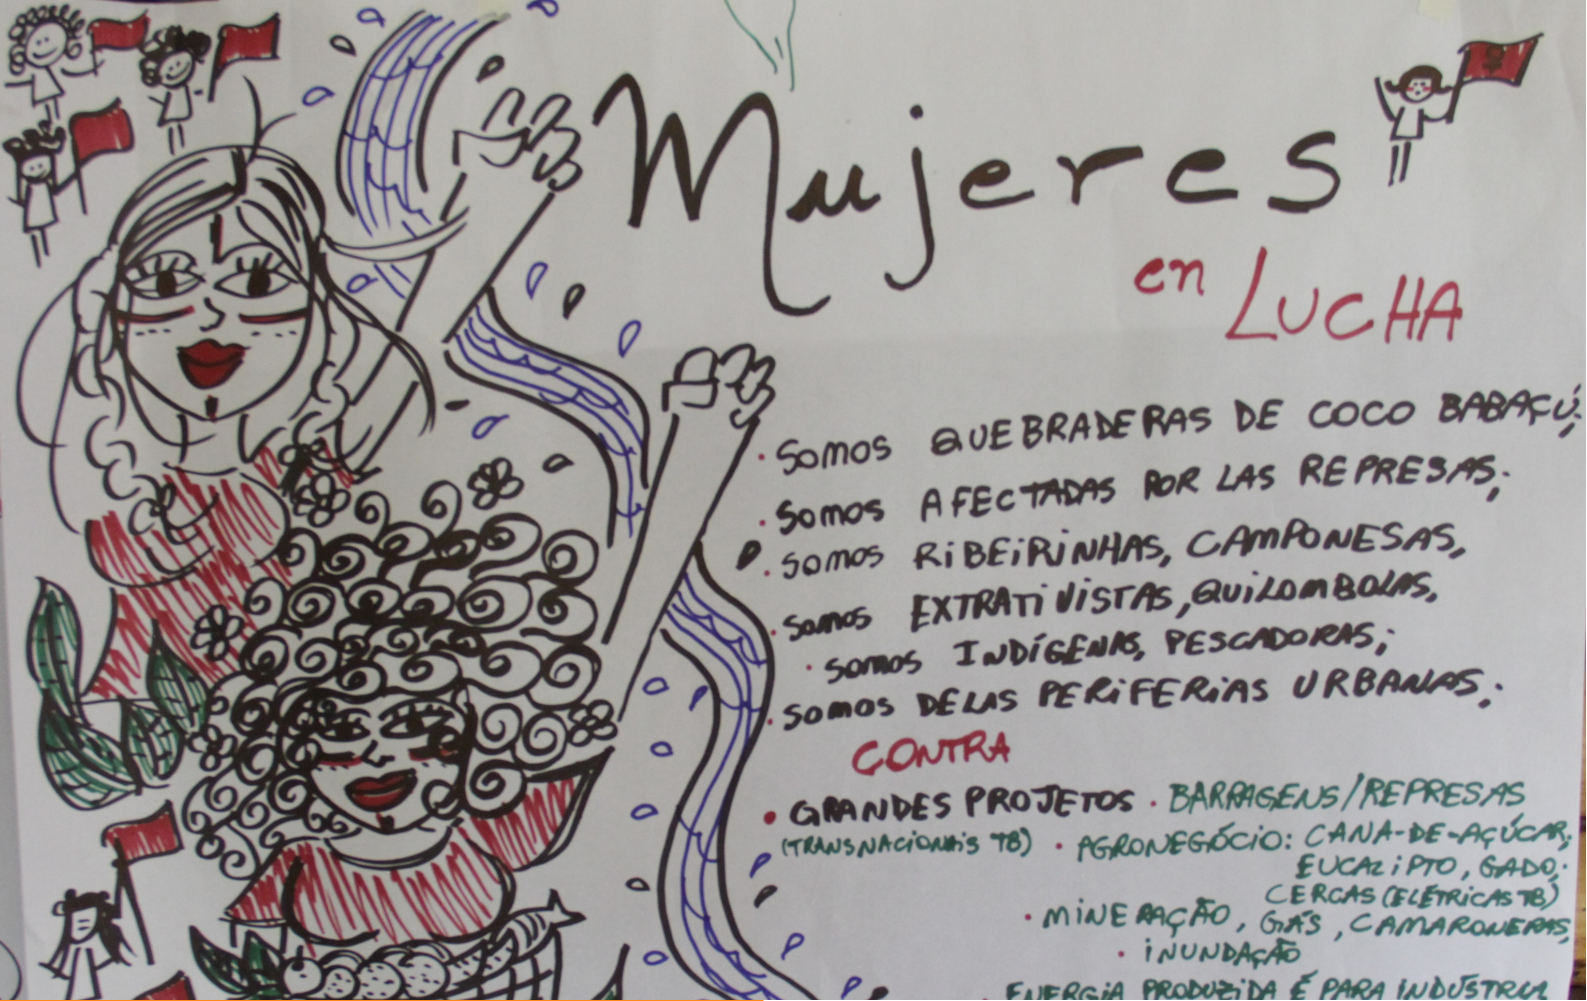 Mujeres
en LUCHA
• SOMOS QUEBRADERAS DE COCO BABAÇÚ;
• SOMOS AFECTADAS POR LAS REPRESAS;
• SOMOS RIBEIRINHAS, CAMPONESAS,
• SOMOS EXTRATIVISTAS, QUILOMBOLAS,
• SOMOS INDÍGENAS, PESCADORAS;
• SOMOS DE LAS PERIFERIAS URBANAS.
CONTRA
• GRANDES PROJETOS • BARRAGENS/REPRESAS
(TRANSNACIONAIS TB) • AGRONEGÓCIO: CANA-DE-AÇÚCAR,
EUCALIPTO, GADO;
CERCAS (ELÉTRICAS TB)
• MINERAÇÃO, GÁS, CAMARONERAS,
• INUNDAÇÃO
ENERGIA PRODUZIDA É PARA INDÚSTRIA